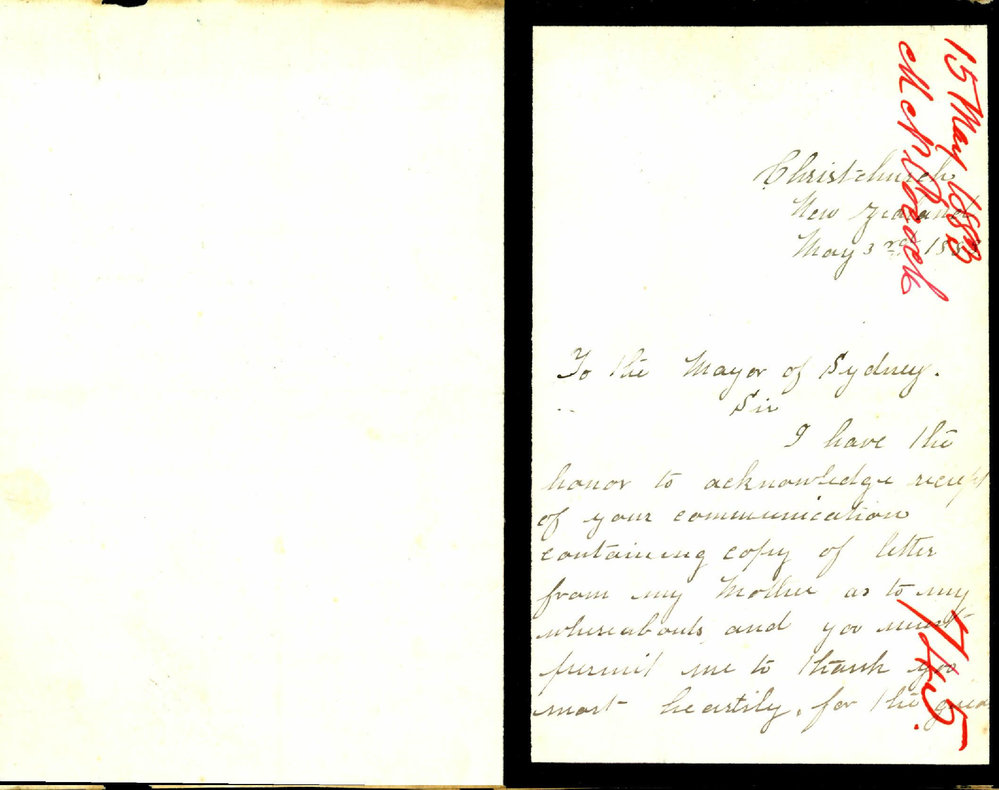 15 May 1883
Christchurch
New Zealand
May 3rd 1883
To the Mayor of Sydney.
Sir
I have the
honor to acknowledge receipt
of your communication
containing copy of letter
from my Mother as to my
whereabouts and you must
permit me to thank you
most heartily, for the great
745